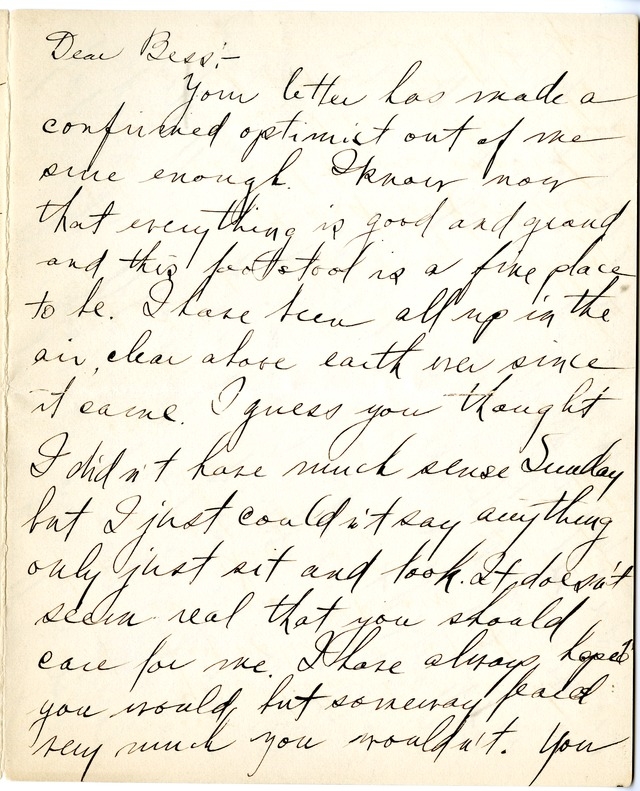 Dear Bess:-
Your letter has made a
confirmed optimist out of me
sure enough. I know now
that everything is good and grand
and this footstool is a fine place
to be. I have been all up in the
air, clear above earth ever since
it came. I guess you thought
I didn't have much sense Sunday
but I just couldn't say anything
only just sit and look. It doesn't
seem real that you should
care for me. I have always hoped
you would but someway feard
very much you wouldn't. You